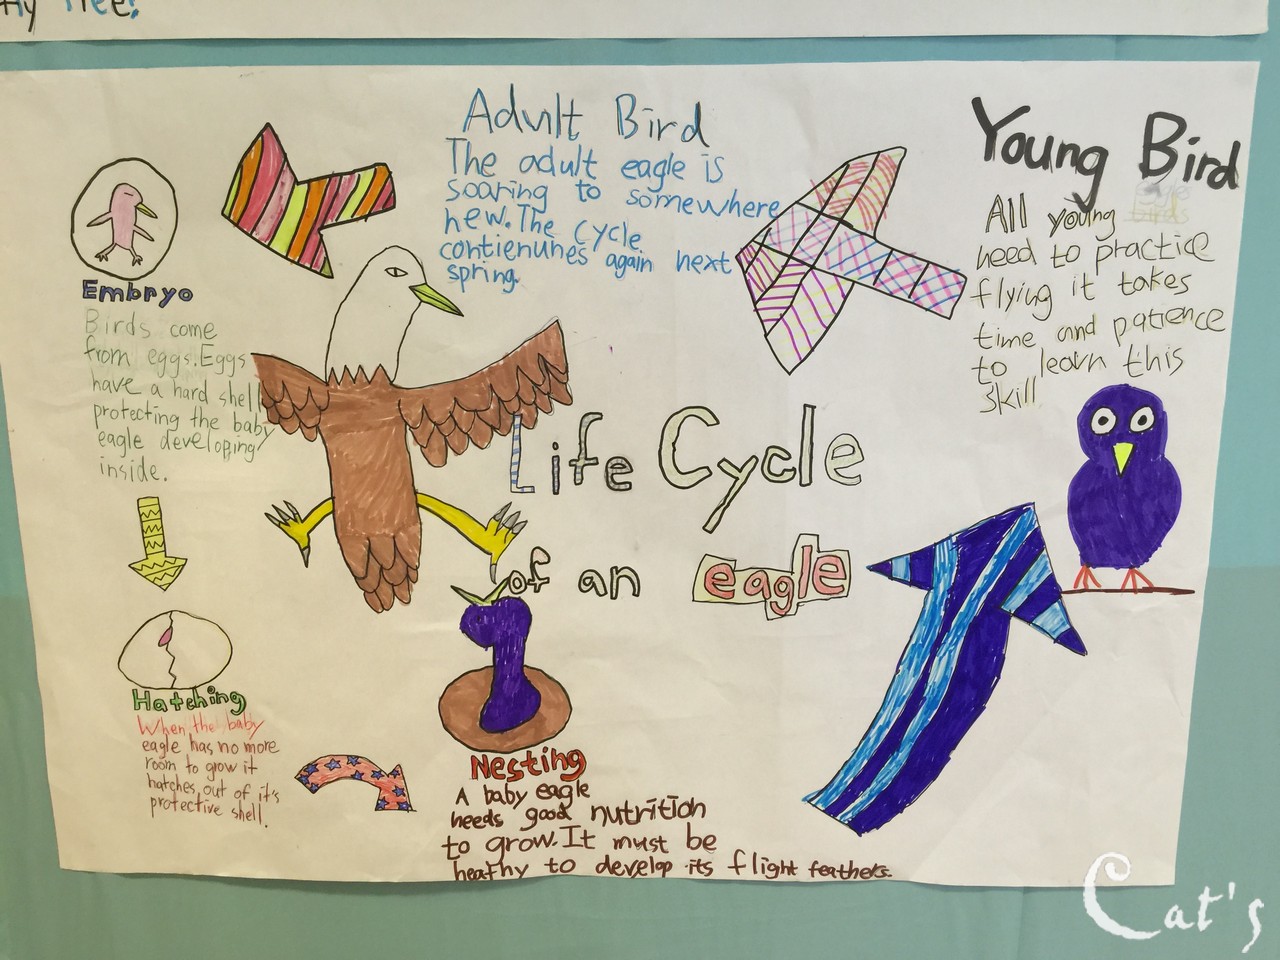 Tree!
Adult Bird
The adult eagle is
soaring to somewhere
new. The Cycle
contienunes again next
spring.
Young Bird
All young eagle
need to practice
flying it takes
time and patience
to learn this
skill.
Embryo
Birds come
from eggs. Eggs
have a hard shell
protecting the baby
eagle developing
inside.
Life Cycle
of an eagle
Hatching
When the baby
eagle has no more
room to grow it
hatches out of it's
protective shell.
Nesting
A baby eagle
needs good nutrition
to grow. It must be
heathy to develop its flight feathers.
Cat's